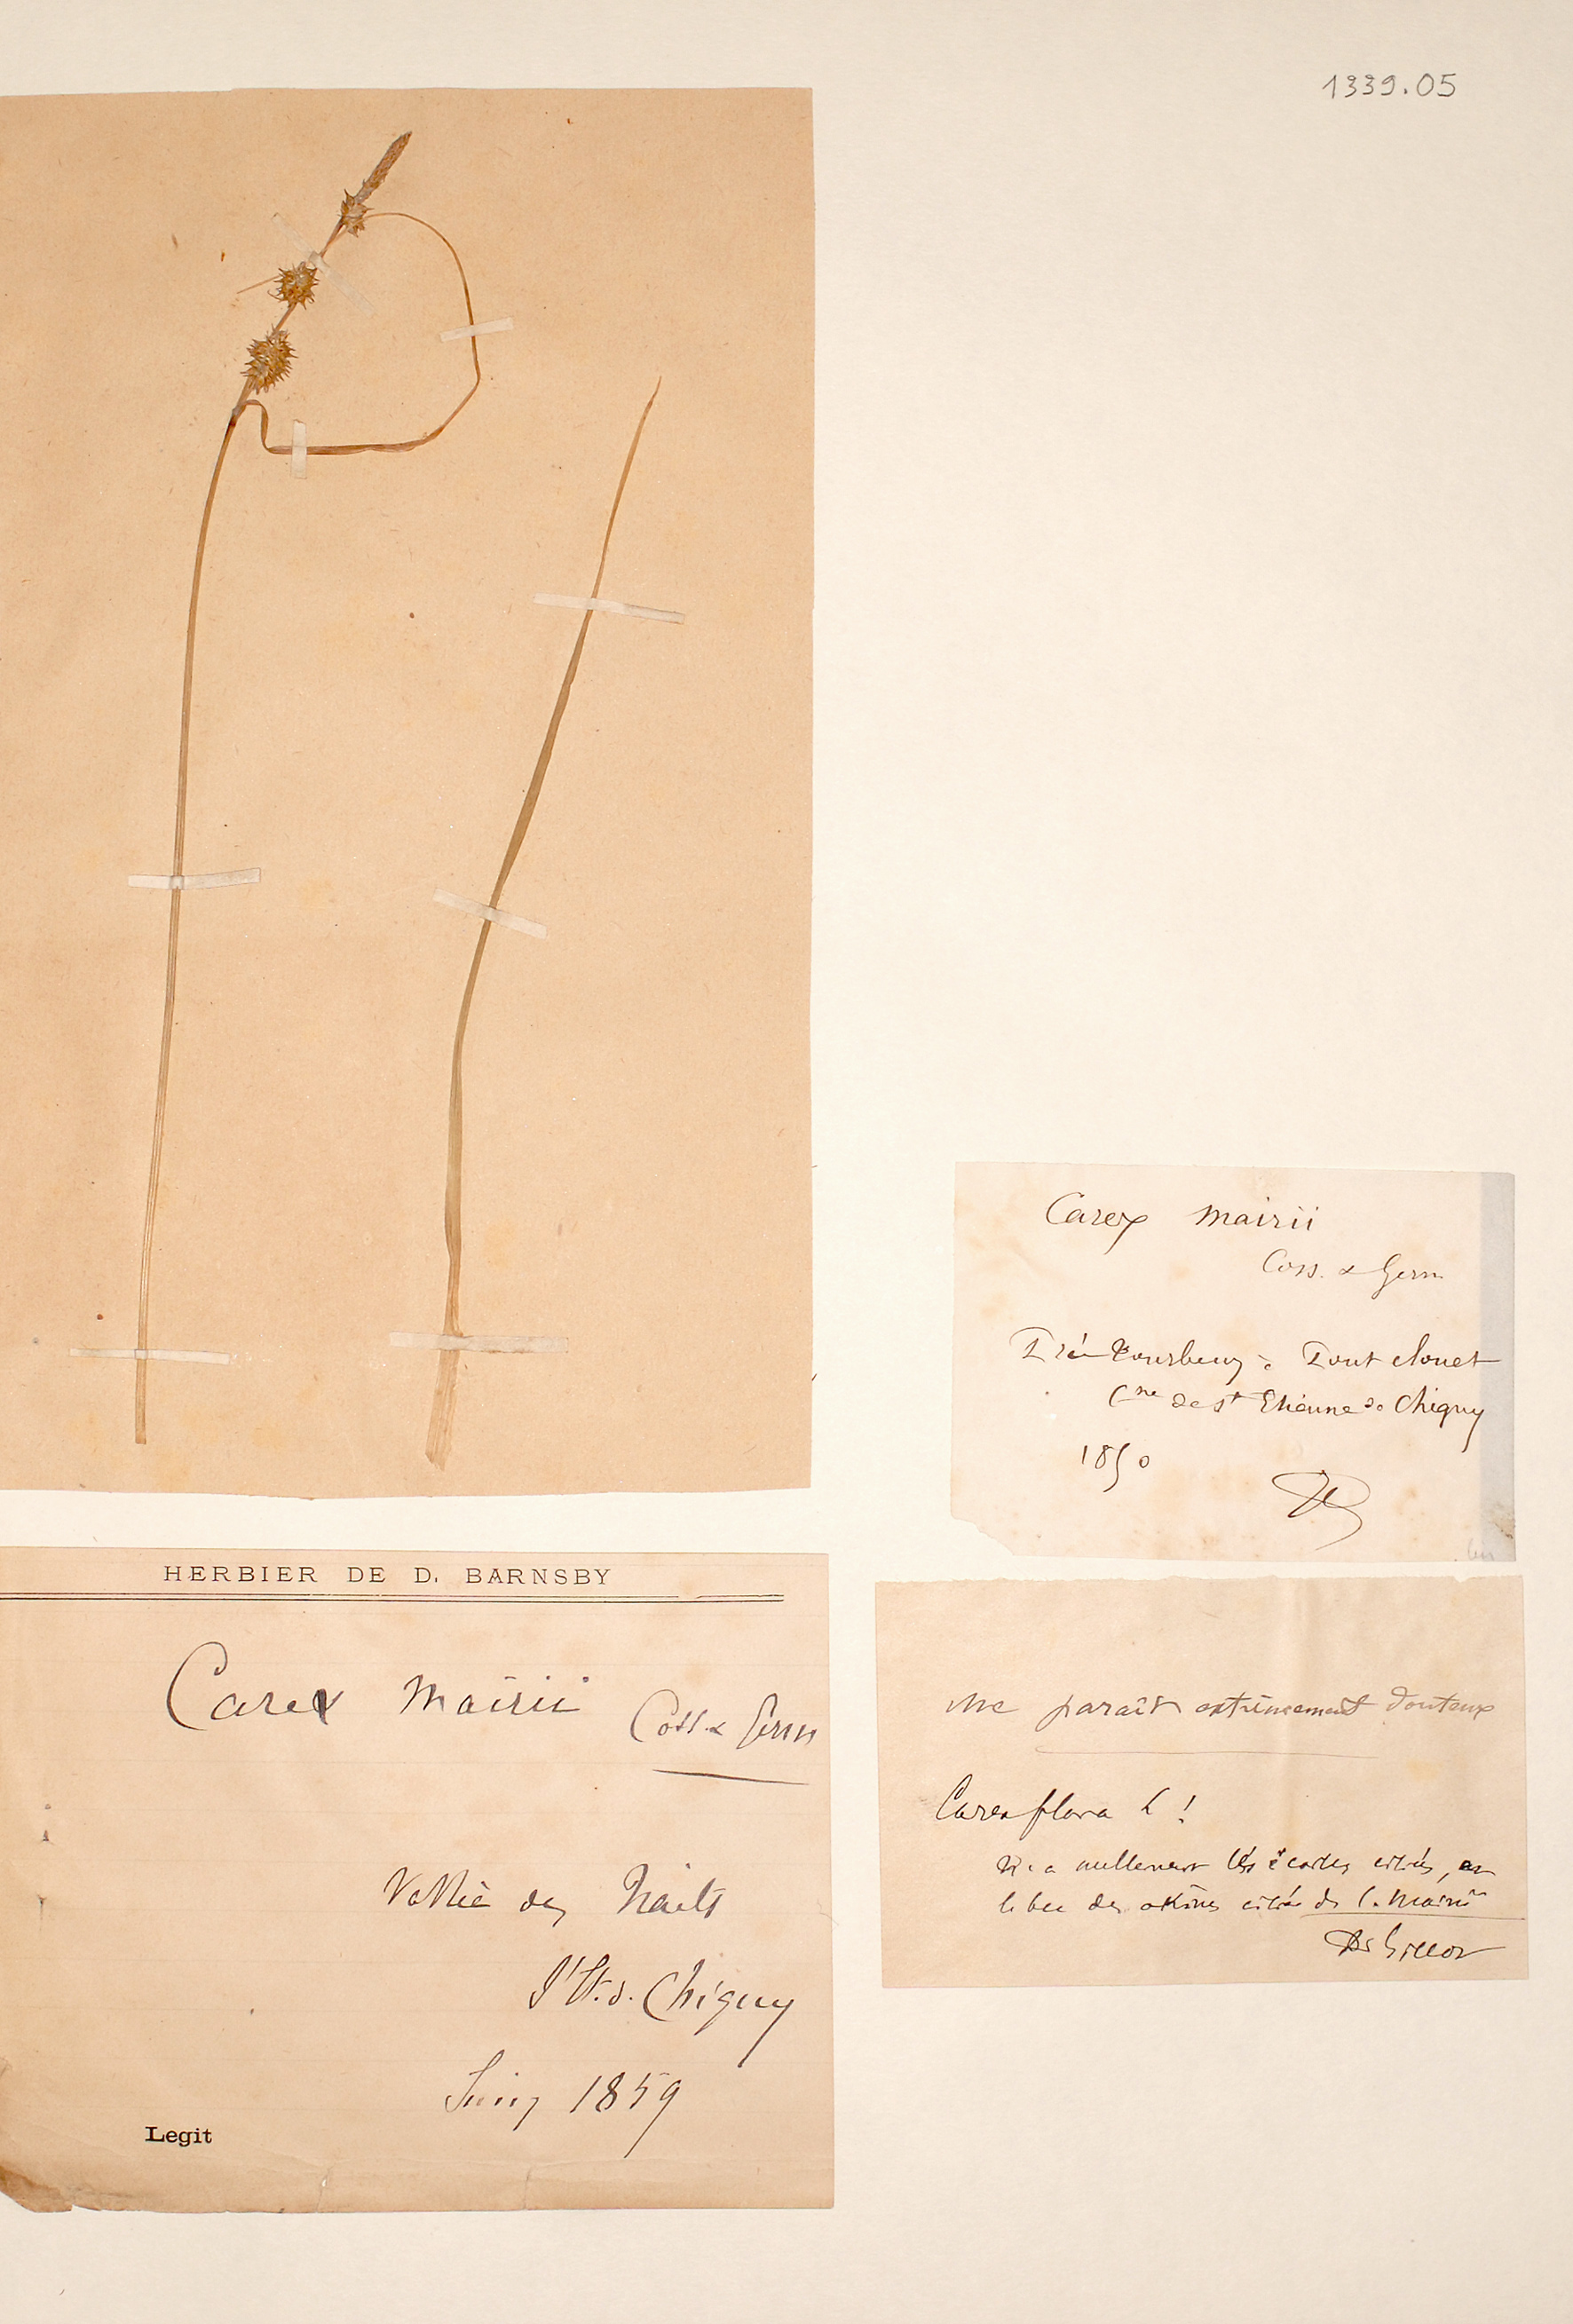 1339.05
Carex mairii
Coss. & Germ
Pré tourbeux à Pont clouet
Cne de St Etienne de Chigny
1850
HERBIER DE D. BARNSBY
Carex Mairii Coss. & Germ
Vallée des
St Et. d. Chigny
Juin 1859
Legit
Me paraît extrêmement douteux
Carex flava L!
N'a nullement les écailles ciliées, et
le bec des akènes ciliés du C. Mairii
Dr Gillot